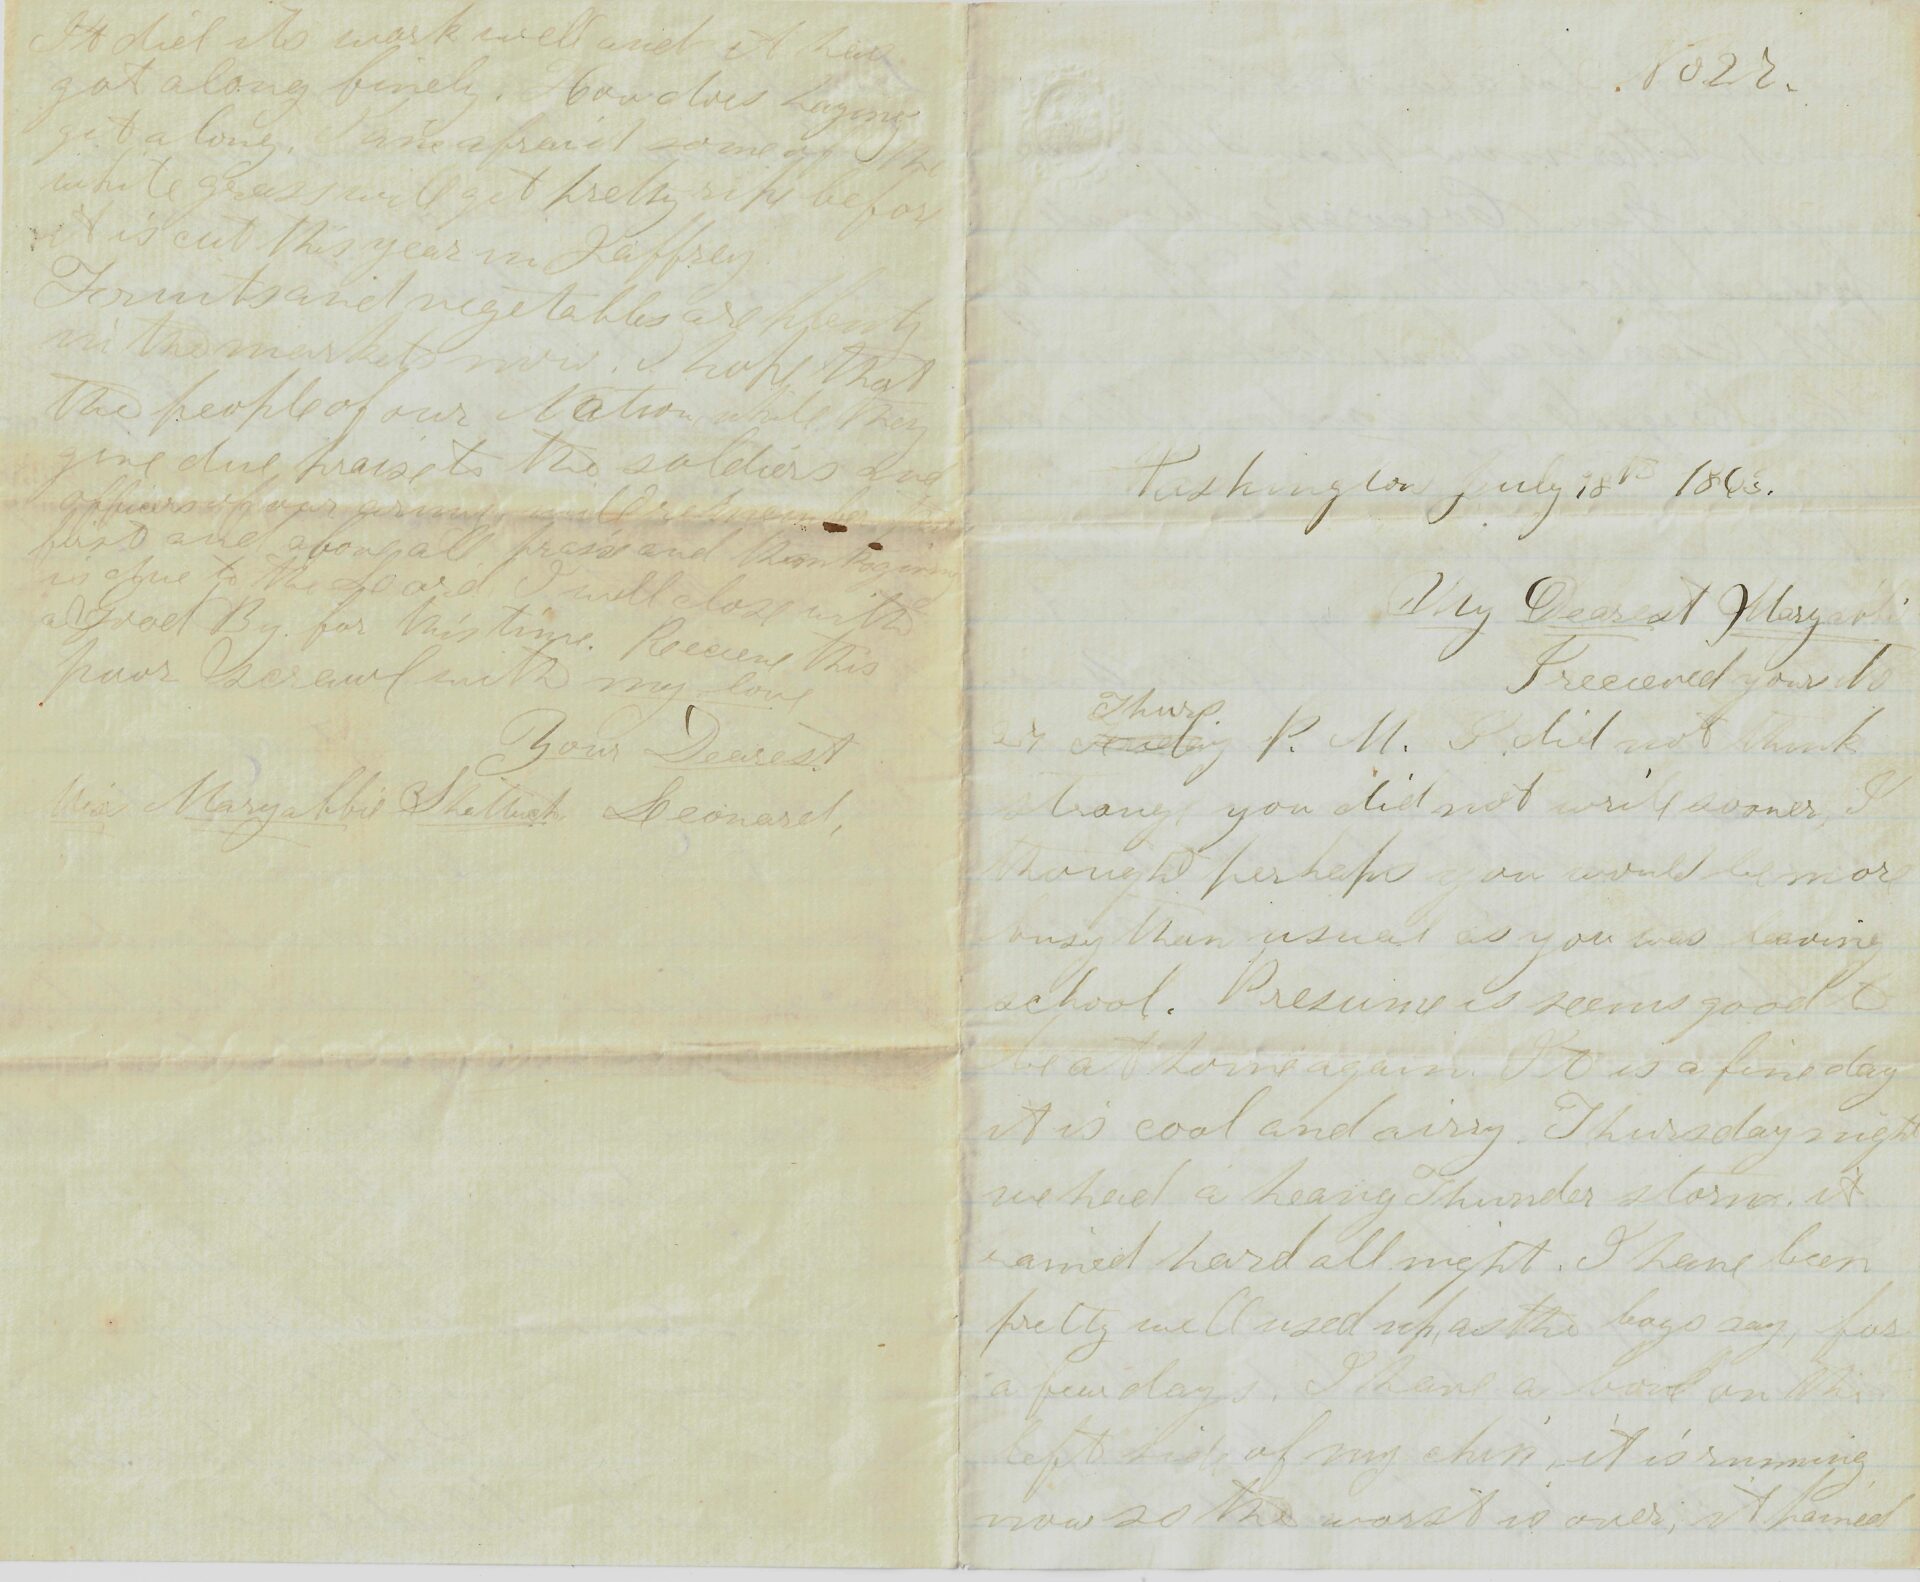 No 27.
Washington July 18th 1863.
My Dearest Maryabbi
I received yours No
27 Thurs. P. M. I did not think
strange you did not write sooner, I
thought perhaps you would be more
busy than usual as you was leaving
school. Presume is seems good to
be at home again. It is a fine day
it is cool and airry. Thursday night
we had a heavy Thunder storm. it
rained hard all night. I have been
pretty well used up, as the boys say, for
a few days. I have a boil on the
left side of my chin, it is running
now so the worst is over; it pained
It did its work well and it has
got along finely. How does haying
get along. I am afraid some of the
white grass will get pretty ripe before
it is cut this year in Jaffrey
Fruits and vegetables are plenty
in the markets now. I hope that
the people of our Nation while they
give due praise to the soldiers and
officers of our army, will remember that
first and above all praise and thanksgiving
is due to the Lord. I will close with
a Good By for this time. Receive this
poor scrawl with my love
Your Dearest
Miss Maryabbie Shattuck Leonard,